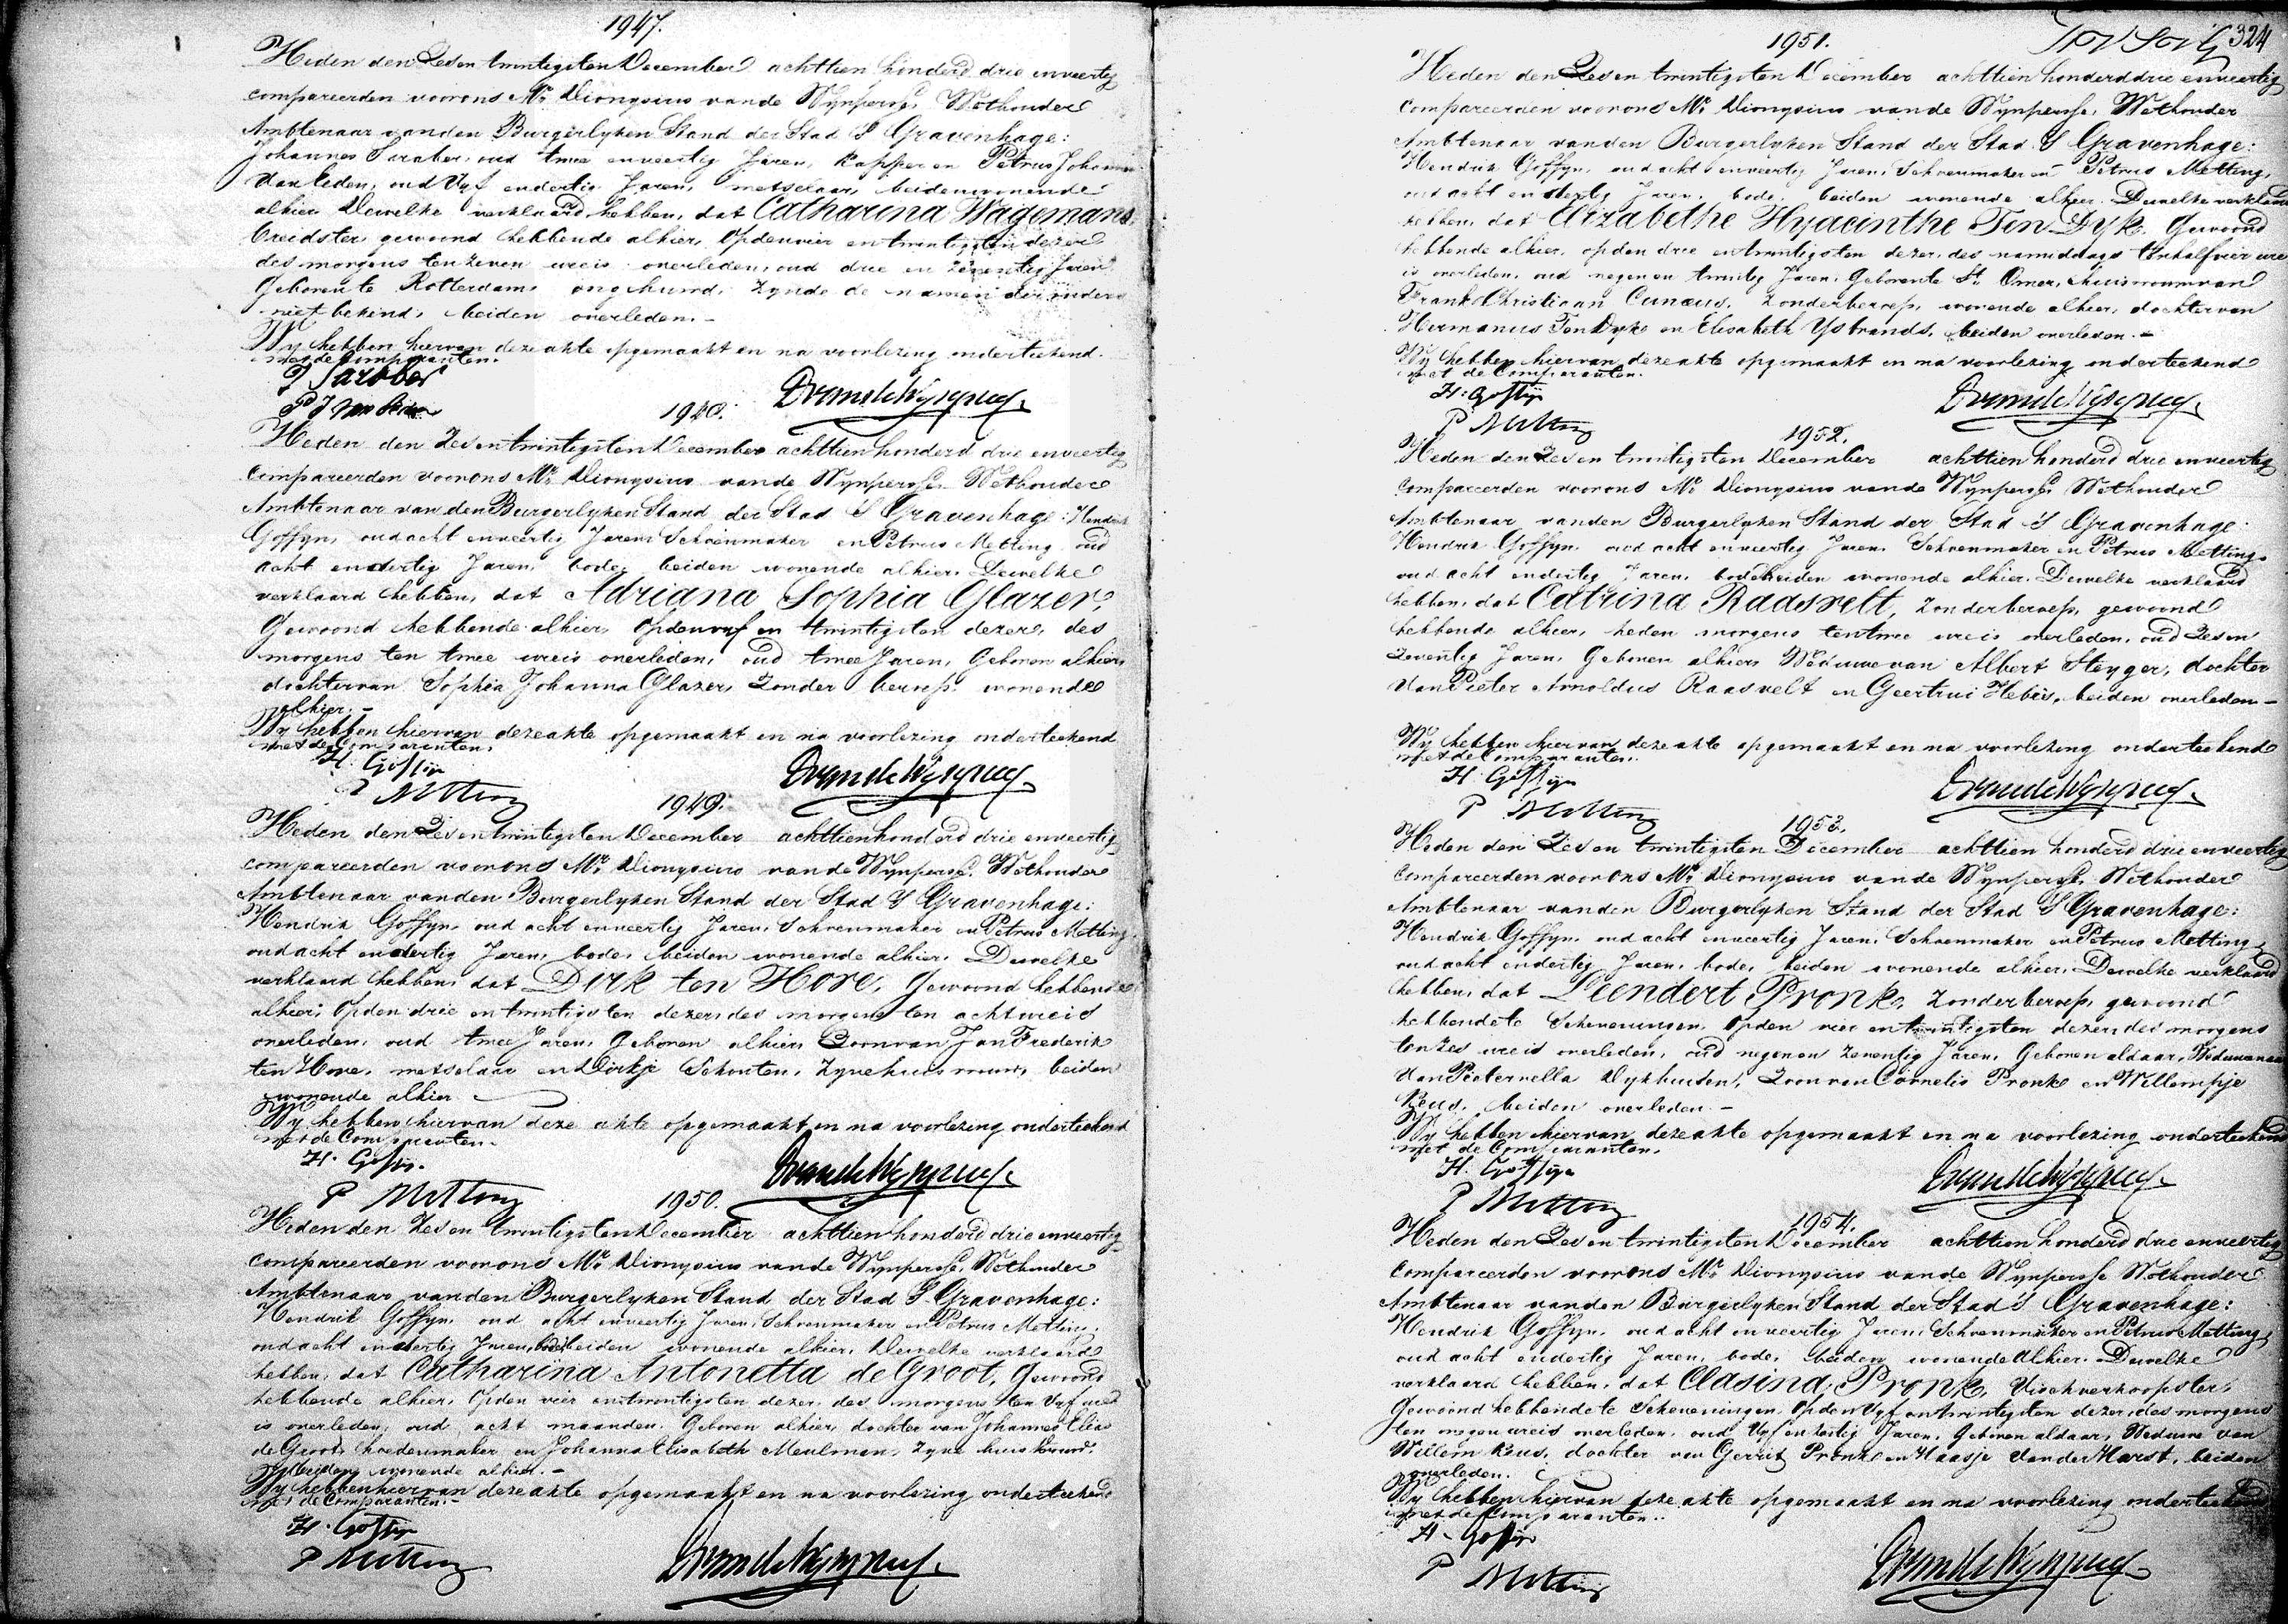 1947.
Heden den Zes en twintigsten December achttien honderd drie en veertig
compareerden voor ons Mr. Dionysius van de Wynpersse, Wethouder
Ambtenaar van den Burgerlyken Stand der Stad 'S Gravenhage:
Johannes Saraber, oud twee en veertig Jaren, Kapper en Petrus Johannes
van Leden, oud Vyf en dertig Jaren, metselaar, beiden wonende
alhier Dewelke verklaard hebben, dat Catharina Wagemans,
breidster, gewoond hebbende alhier, op den vier en twintigsten dezer
des morgens ten zeven ure is overleden, oud drie en zeventig Jaren
Geboren te Rotterdam, ongehuwd, zynde de namen der ouders
niet bekend, beiden overleden.-
Wy hebben hiervan deze akte opgemaakt en na voorlezing onderteekend
met de Comparanten.
J Saraber
PJ van Leden
1948.
Heden den Zes en twintigsten December achttien honderd drie en veertig
compareerden voor ons Mr. Dionysius van de Wynpersse, Wethouder
Ambtenaar van den Burgerlyken Stand der Stad 'S Gravenhage: Hendrik
Goffyn, oud acht en veertig Jaren, Schoenmaker en Petrus Metting oud
acht en dertig Jaren, bode, beiden wonende alhier. Dewelke
verklaard hebben, dat Adriana Sophia Glazer,
Gewoond hebbende alhier, op den vyf en twintigsten dezer, des
morgens ten twee ure is overleden, oud twee Jaren, Geboren alhier,
dochter van Sophia Johanna Glazer, Zonder beroep, wonende
alhier.-
Wy hebben hiervan deze akte opgemaakt en na voorlezing onderteekend
met de Comparanten.
H. Goffijn
P Metting
1949.
Heden den Zes en twintigsten December achttien honderd drie en veertig
compareerden voor ons Mr. Dionysius van de Wynpersse, Wethouder
Ambtenaar van den Burgerlyken Stand der Stad 'S Gravenhage:
Hendrik Goffyn, oud acht en veertig Jaren, Schoenmaker en Petrus Metting,
oud acht en dertig Jaren, bode, beiden wonende alhier. Dewelke
verklaard hebben, dat Dirk ten Hove, Gewoond hebbende
alhier, op den drie en twintigsten dezer, des morgens ten acht ure is
overleden, oud twee Jaren, Geboren alhier, Zoon van Jan Frederik
ten Hove, metselaar en Dirkje Schouten, Zyne huisvrouw, beiden
wonende alhier
Wy hebben hiervan deze akte opgemaakt en na voorlezing onderteekend
met de Comparanten.
H. Goffijn.
P Metting
1950.
Heden den Zes en twintigsten December achttien honderd drie en veertig
compareerden voor ons Mr. Dionysius van de Wynpersse, Wethouder
Ambtenaar van den Burgerlyken Stand der Stad 'S Gravenhage:
Hendrik Goffyn, oud acht en veertig Jaren, Schoenmaker en Petrus Metting,
oud acht en dertig Jaren, bode, beiden wonende alhier. Dewelke verklaard
hebben, dat Catharina Antonetta de Groot, Gewoond
hebbende alhier, op den vier en twintigsten dezer, des morgens ten vyf ure
is overleden, oud acht maanden, Geboren alhier, dochter van Johannes Elias
de Groot, hoedenmaker en Johanna Elisabeth Meulman, Zyne huisvrouw,
beiden wonende alhier.-
Wy hebben hiervan deze akte opgemaakt en na voorlezing onderteekend
met de Comparanten.-
H. Goffijn
P Metting
324
1951.
Heden den Zes en twintigsten December achttien honderd drie en veertig
compareerden voor ons Mr. Dionysius van de Wynpersse, Wethouder
Ambtenaar van den Burgerlyken Stand der Stad 'S Gravenhage:
Hendrik Goffyn, oud acht en veertig Jaren, Schoenmaker en Petrus Metting,
oud acht en dertig Jaren, bode, beiden wonende alhier. Dewelke verklaard
hebben, dat Elizabethe Hyacinthe Ten Dyk, Gewoond
hebbende alhier, op den drie en twintigsten dezer, des namiddags ten half vier ure
is overleden, oud negen en twintig Jaren, Geboren te St. Omer, huisvrouw van
Frank Christiaan Cunaeus, Zonder beroep, wonende alhier, dochter van
Hermanus Ten Dyke en Elisabeth Ystrands, beiden overleden.-
Wy hebben hiervan deze akte opgemaakt en na voorlezing onderteekend
met de Comparanten.
H: Goffijn
P Metting
1952.
Heden den Zes en twintigsten December achttien honderd drie en veertig
compareerden voor ons Mr. Dionysius van de Wynpersse, Wethouder
Ambtenaar van den Burgerlyken Stand der Stad 'S Gravenhage:
Hendrik Goffyn, oud acht en veertig Jaren, Schoenmaker en Petrus Metting,
oud acht en dertig Jaren, bode, beiden wonende alhier. Dewelke verklaard
hebben, dat Catrina Raasvelt, Zonder beroep, gewoond
hebbende alhier, heden morgens ten twee ure is overleden, oud Zes en
Zeventig Jaren, Geboren alhier, Weduwe van Albert Steyger, dochter
van Pieter Arnoldus Raasvelt en Geertrui Hebès, beiden overleden-
Wy hebben hiervan deze akte opgemaakt en na voorlezing onderteekend
met de Comparanten.
H. Goffijn
P Metting
1953.
Heden den Zes en twintigsten December achttien honderd drie en veertig
compareerden voor ons Mr. Dionysius van de Wynpersse, Wethouder
Ambtenaar van den Burgerlyken Stand der Stad 'S Gravenhage:
Hendrik Goffyn, oud acht en veertig Jaren, Schoenmaker en Petrus Metting,
oud acht en dertig Jaren, bode, beiden wonende alhier. Dewelke verklaard
hebben, dat Leendert Pronk, Zonder beroep, gewoond
hebbende te Scheveningen, op den vier en twintigsten dezer, des morgens
ten zes ure is overleden, oud negen en zeventig Jaren, Geboren aldaar, Weduwenaar
van Pieternella Dykhuizen, Zoon van Cornelis Pronk en Willempje
Keus, beiden overleden.-
Wy hebben hiervan deze akte opgemaakt en na voorlezing onderteekend
met de Comparanten.
H. Goffijn
P Metting
1954.
Heden den Zes en twintigsten December achttien honderd drie en veertig
compareerden voor ons Mr. Dionysius van de Wynpersse Wethouder
Ambtenaar van den Burgerlyken Stand der Stad 'S Gravenhage:
Hendrik Goffyn, oud acht en veertig Jaren, Schoenmaker en Petrus Metting,
oud acht en dertig Jaren, bode, beiden wonende alhier. Dewelke
verklaard hebben, dat Clasina Pronk, Vischverkoopster,
Gewoond hebbende te Scheveningen, op den Vyf en twintigsten dezer, des morgens
ten negen ure is overleden, oud Vyf en tachtig Jaren, Geboren aldaar, Weduwe van
Willem Keus, dochter van Gerrit Pronk en Maasje van der Harst, beiden
overleden.
Wy hebben hiervan deze akte opgemaakt en na voorlezing onderteekend
met de Comparanten..
H. Goffijn
P Metting